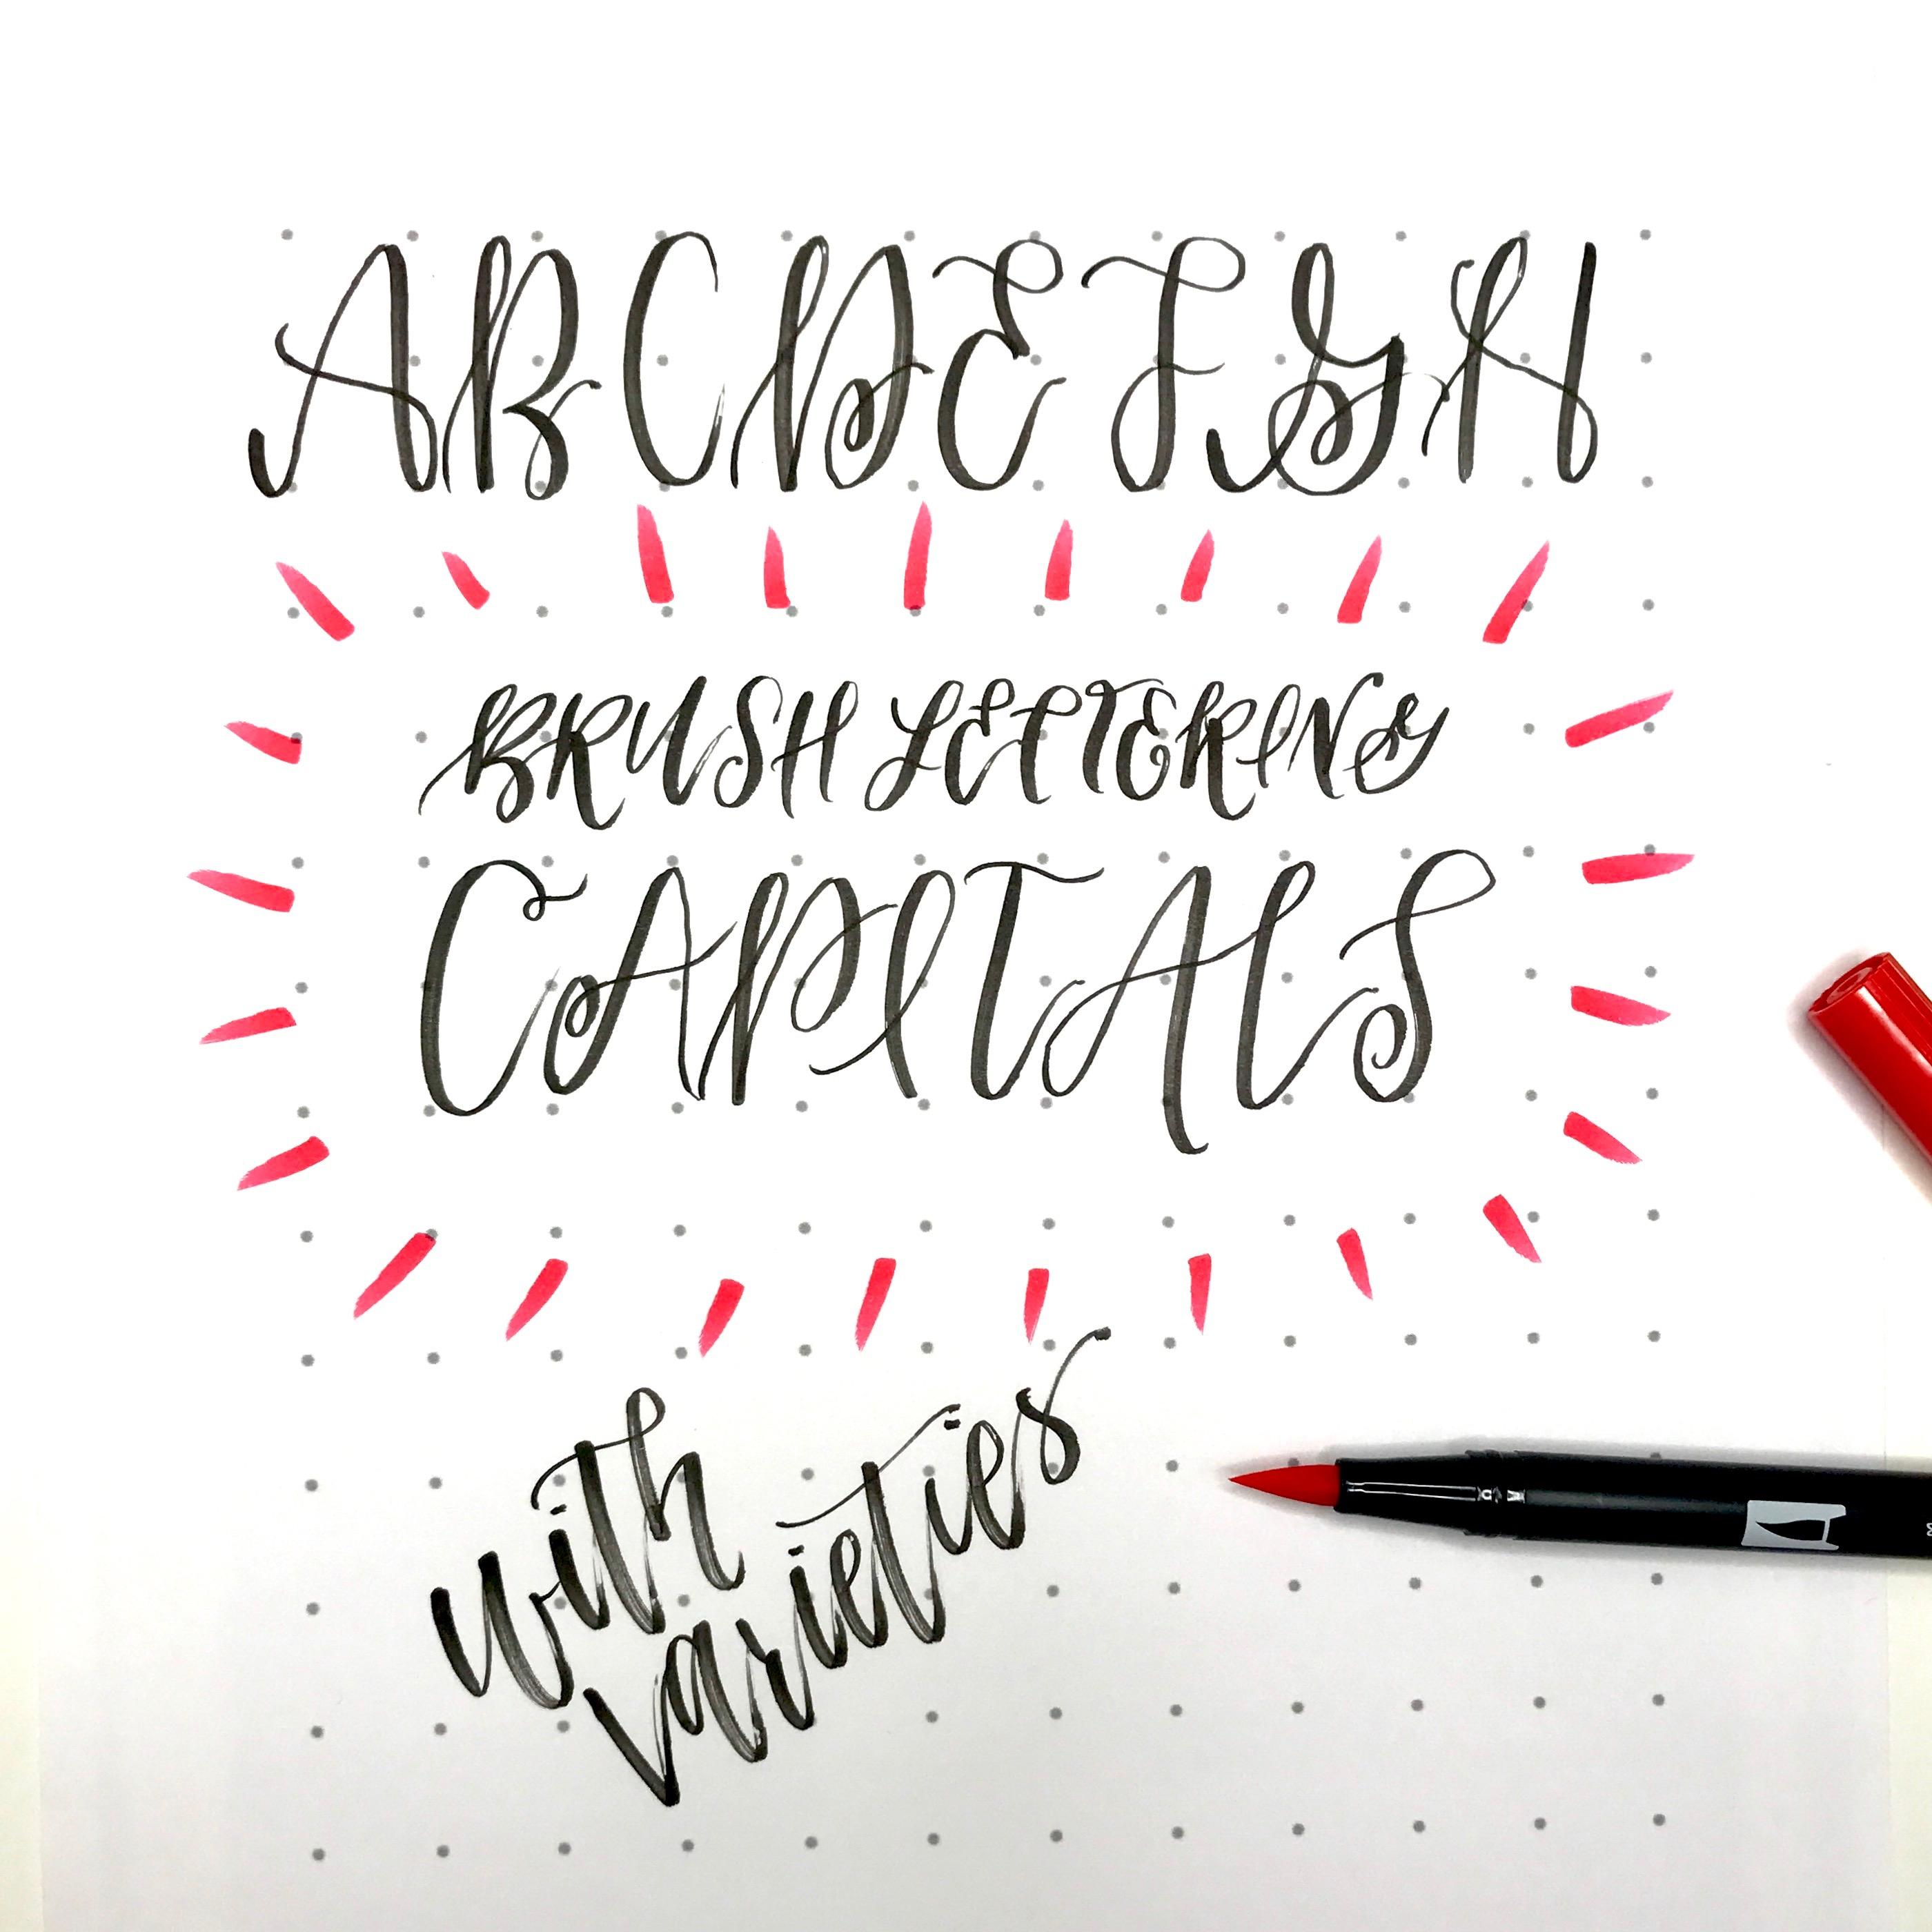 ABCDEFGH
BRUSH LETTERING
CAPITALS
with
varieties